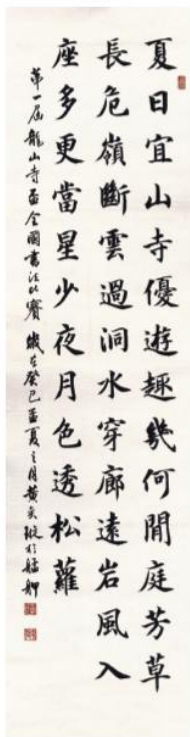 夏日宜山寺優遊趣幾何閒庭芳草
長危嶺斷雲過洞水穿廊遠岩風入
座多更當星少夜月色透松蘿
第一屆龍山寺盃全國書法比賽 歲在癸巳孟夏之月黃奕璇於艋舺